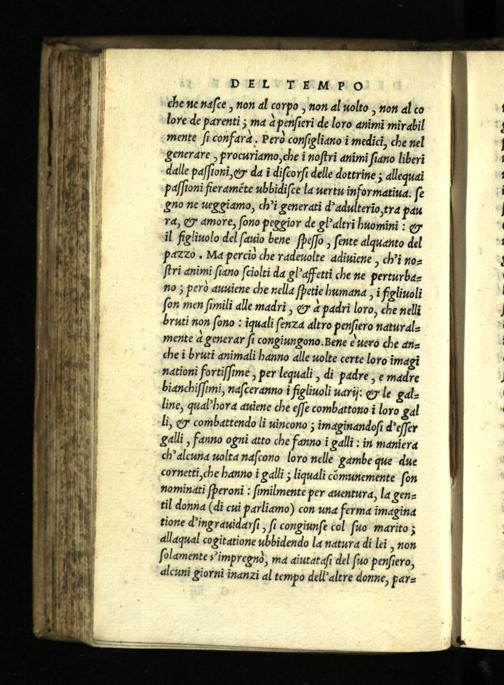 DEL TEMPO
che ne nasce, non al corpo, non al uolto, non al co
lore de parenti; ma à pensieri de loro animi mirabil
mente si confarà. Però consigliano i medici, che nel
generare, procuriamo, che i nostri animi siano liberi
dalle passioni, & da i discorsi delle dottrine; allequai
passioni fieramẽte ubbidisce la uertu informatiua. se
gno ne ueggiamo, ch'i generati d'adulterio, tra pau
ra, & amore, sono peggior de gl'altri huomini: &
il figliuolo del sauio bene spesso, sente alquanto del
pazzo. Ma perciò che radeuolte adiuiene, ch'i no=
stri animi siano sciolti da gl'affetti che ne perturba=
no; però auuiene che nella spetie humana, i figliuoli
son men simili alle madri, & à padri loro, che nelli
bruti non sono: iquali senza altro pensiero natural=
mente à generar si congiungono. Bene è uero che an=
che i bruti animali hanno alle uolte certe loro imagi
nationi fortissime, per lequali, di padre, e madre
bianchissimi, nasceranno i figliuoli uarij: & le gal=
line, qual'hora auiene che esse combattono i loro gal
li, & combattendo li uincono; imaginandosi d'esser
galli, fanno ogni atto che fanno i galli: in maniera
ch'alcuna uolta nascono loro nelle gambe que due
cornetti, che hanno i galli; liquali cõmunemente son
nominati speroni: similmente per auentura, la gen=
til donna (di cui parliamo) con una ferma imagina
tione d'ingrauidarsi, si congiunse col suo marito;
allaqual cogitatione ubbidendo la natura di lei, non
solamente s'impregnò, ma aiutatasi del suo pensiero,
alcuni giorni inanzi al tempo dell'altre donne, par=